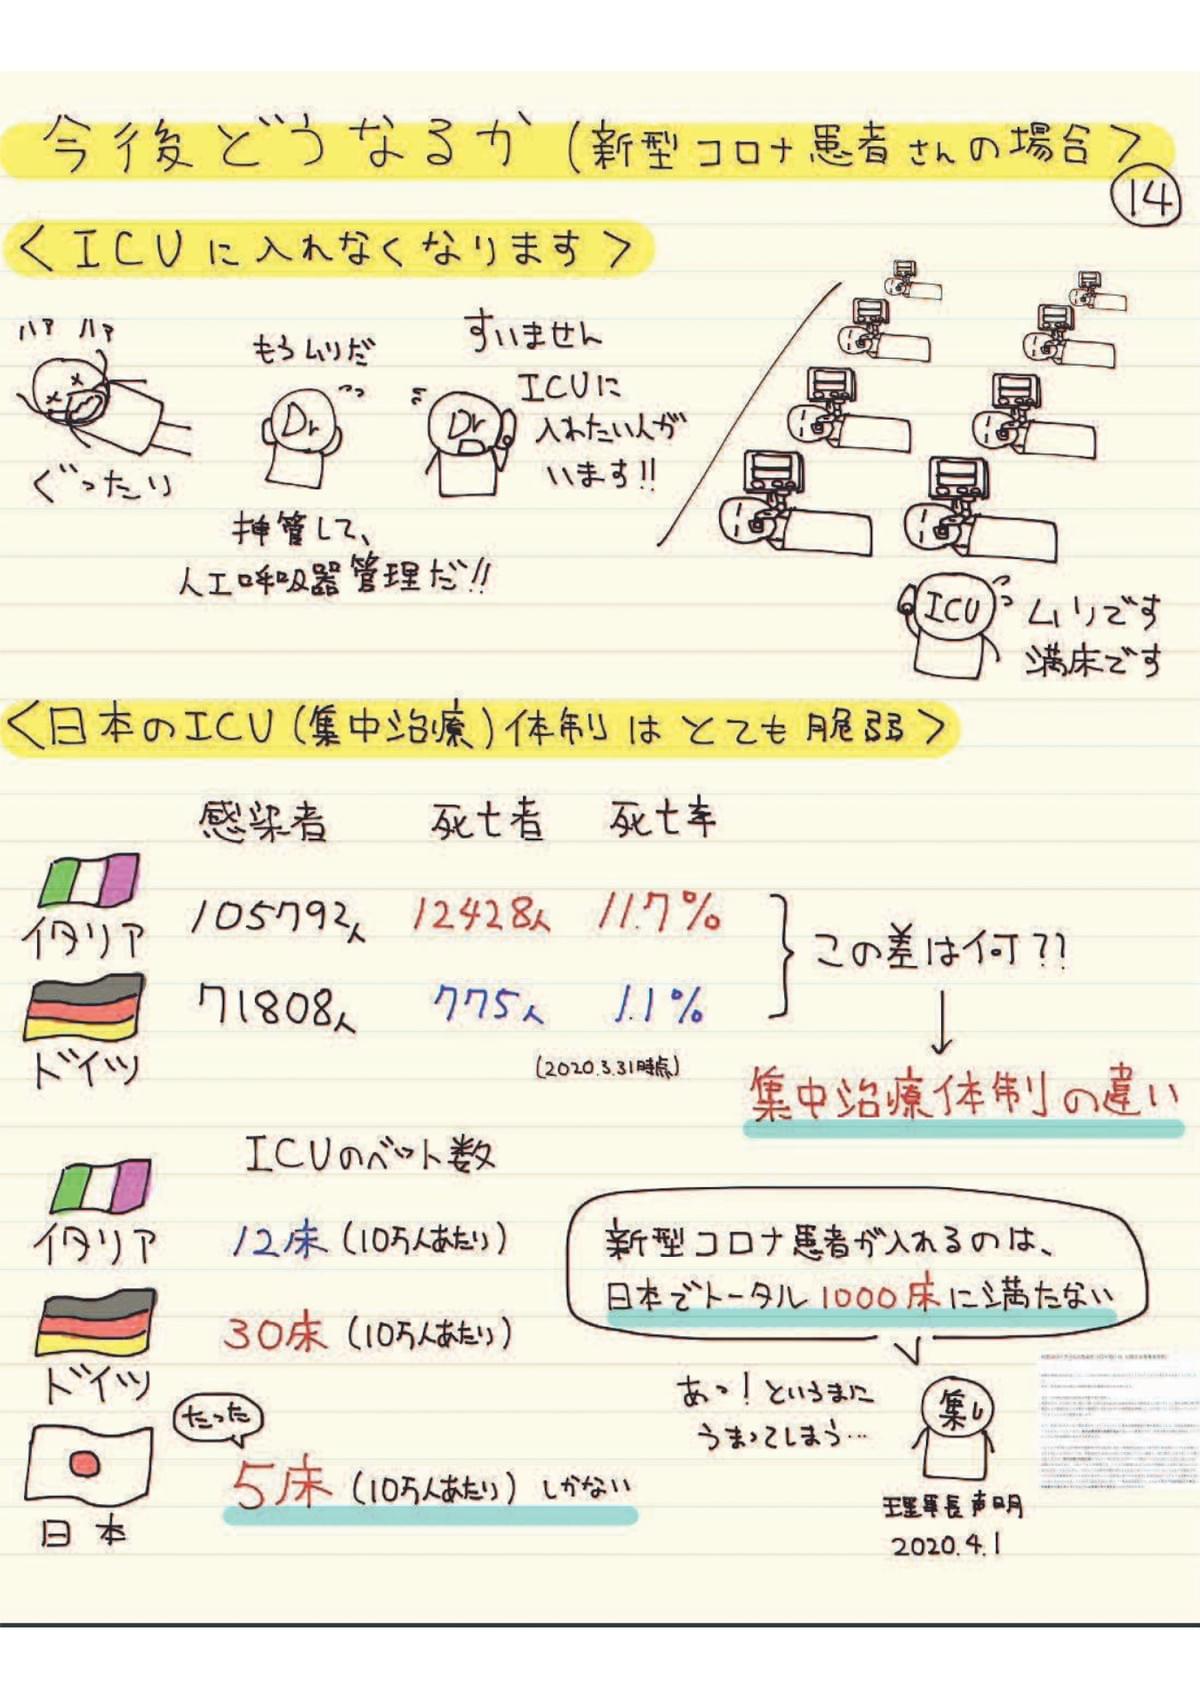 今後どうなるか(新型コロナ患者さんの場合)
14
<ICUに入れなくなります>
ハァ ハァ
ぐったり
もうムリだ
Dr
挿管して、
人工呼吸器管理だ!!
すいません
ICUに
入れたい人が
います!!
Dr
ICU
ムリです
満床です
<日本のICU(集中治療)体制はとても脆弱>
感染者 死亡者 死亡率
イタリア 105792人 12428人 11.7%
ドイツ 71808人 775人 1.1%
(2020.3.31時点)
この差は何??
集中治療体制の違い
ICUのベット数
イタリア 12床(10万人あたり)
ドイツ 30床(10万人あたり)
たった
日本 5床(10万人あたり)しかない
新型コロナ患者が入れるのは、
日本でトータル1000床に満たない
あっ!というまに
うまってしまう…
集
理事長声明
2020.4.1